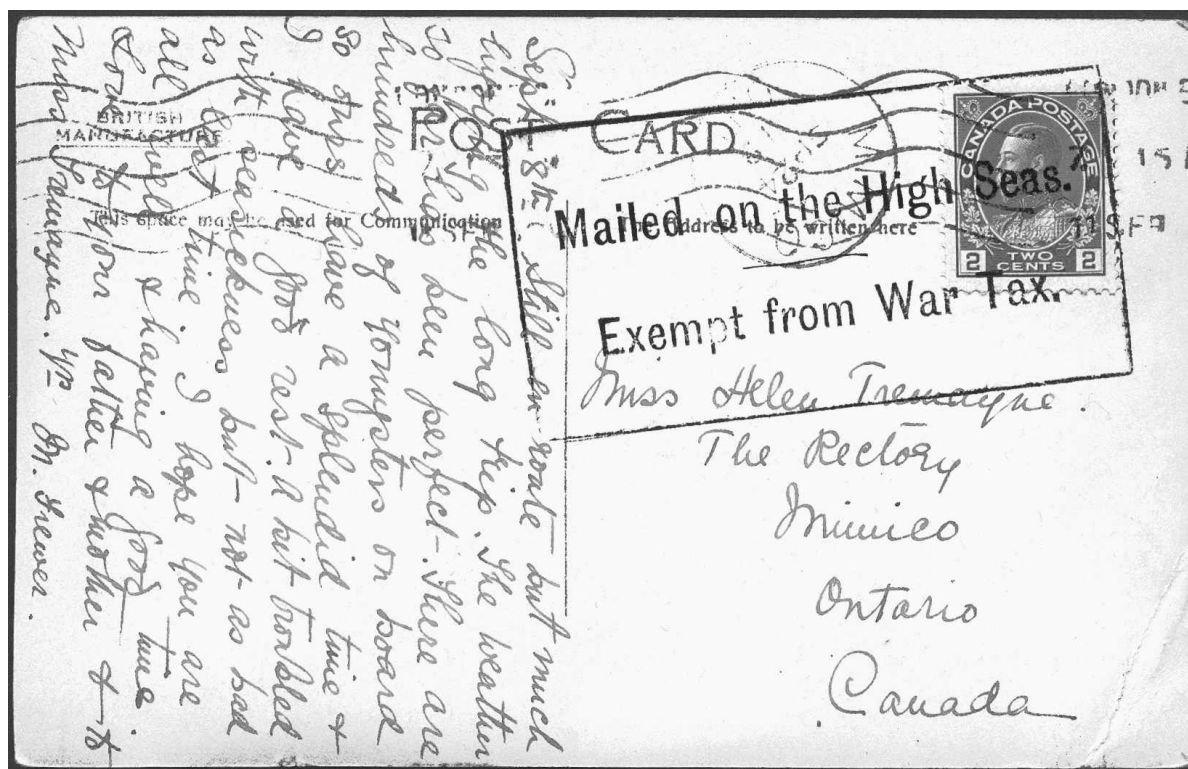 BRITISH
MANUFACTURE
POST CARD
This space may be used for Communication
Address to be written here
CANADA POSTAGE
2 TWO CENTS 2
Mailed on the High Seas.
Exempt from War Tax.
Miss Helen Tremayne.
The Rectory
Mimico
Ontario
Canada
Sept 8th. Still en route but much
the long trip. The weather
so far has been perfect. There are
hundreds of youngsters on board
so I have a splendid time &
I have a good rest - a bit troubled
with sea sickness but not as bad
as last time I hope you are
all well & having a good time
Love to your father & mother & to
Miss Tremayne. Yrs M. Trewer.